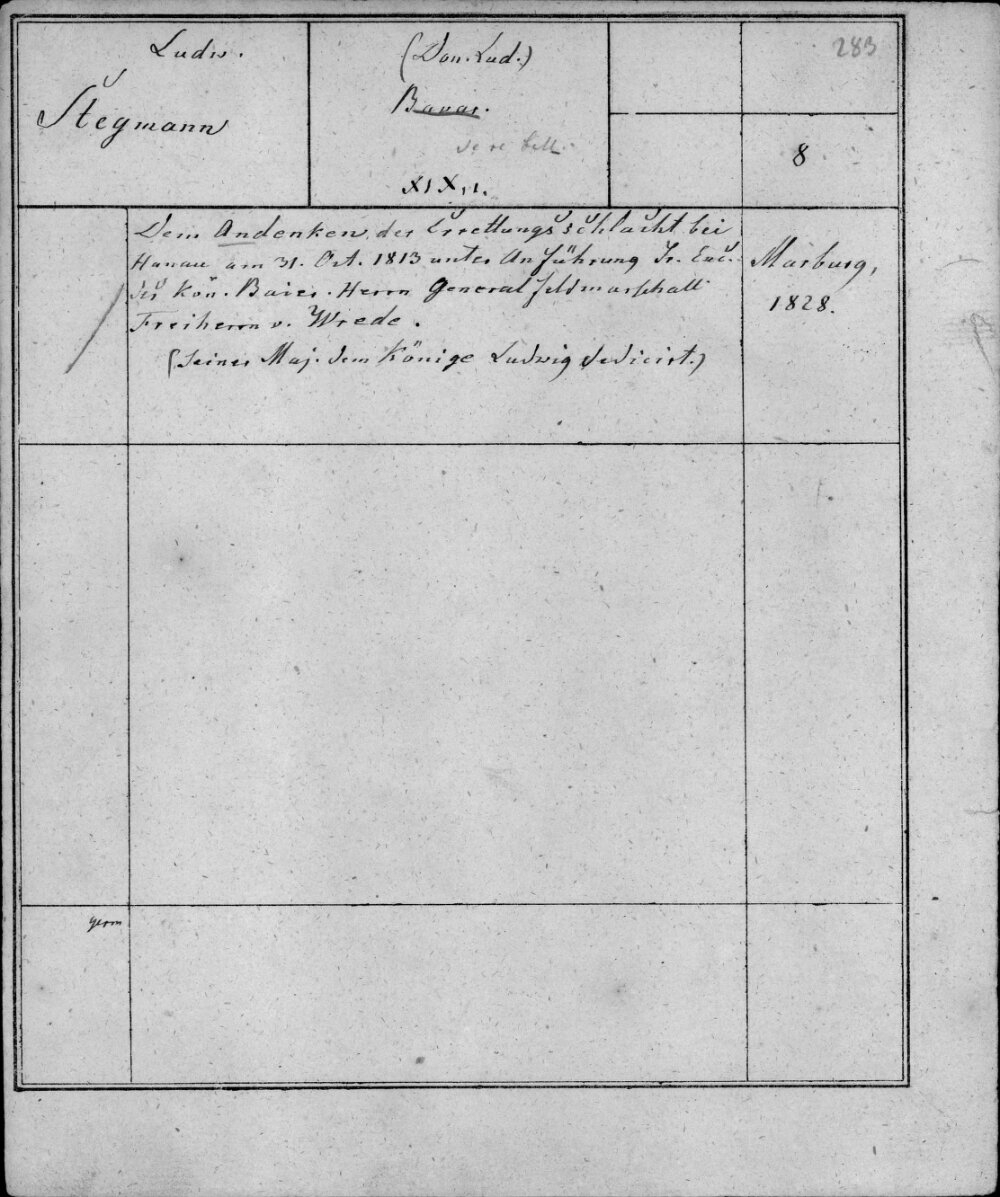 Ludw.
Stegmann
(Don. Lud.)
Bavar.
de re bell.
XIX,1.
283
8
Dem Andenken der Errettungsschlacht bei
Hanau am 31. Oct. 1813 unter Anführung Sr. Exc.
des Kön. Baier. Herrn Generalfeldmarschall
Freiherrn v. Wrede.
(Seiner Maj. dem Könige Ludwig dedicirt.)
Marburg,
1828.
germ